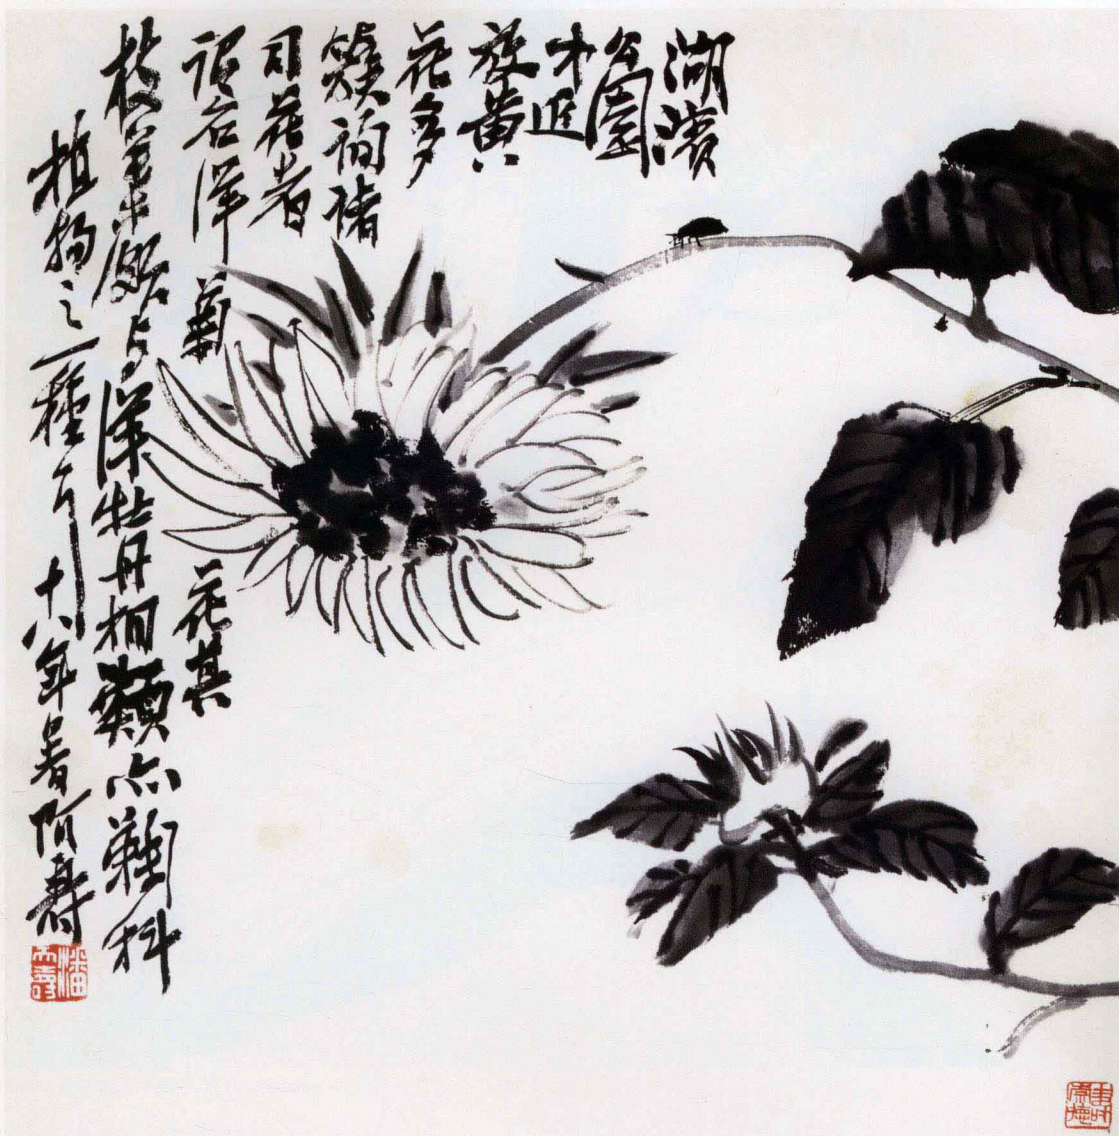 湖濱
公園
黃
花多
簇詢諸
司花者
謂名洋菊花其
枝葉頗与洋牡丹相類亦菊科
植物之一種云十八年暑阿壽
潘天壽